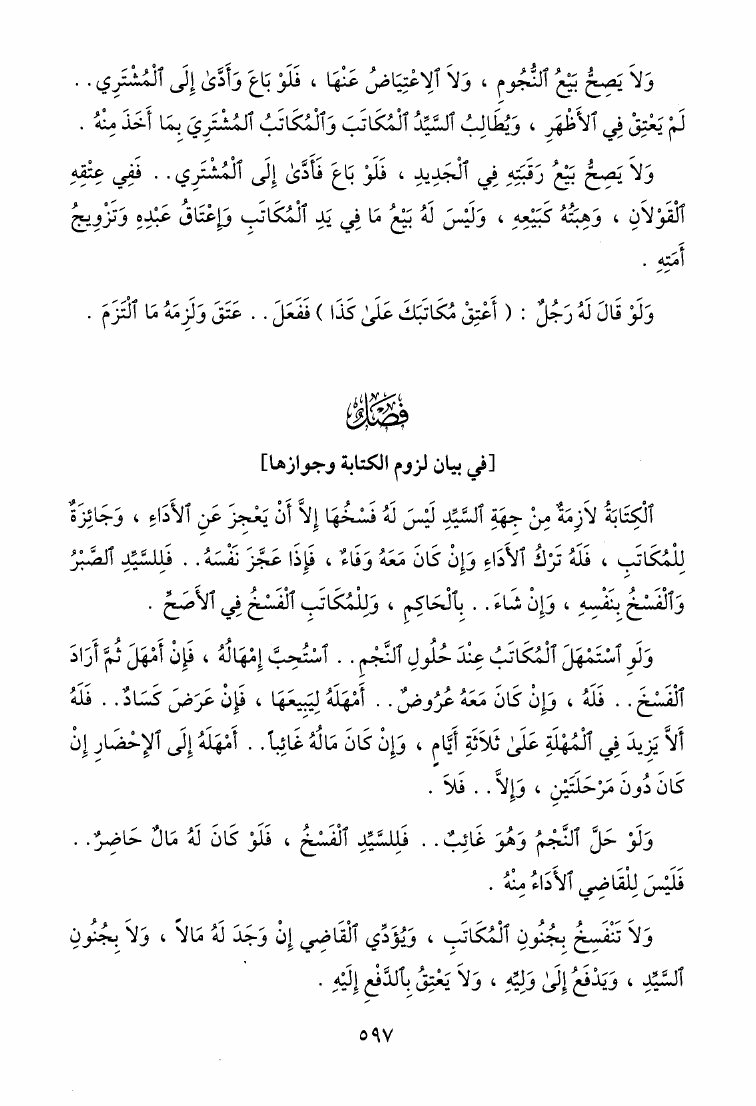 وَلاَ يَصِحُّ بَيْعُ ٱلنُّجُومِ ، وَلاَ ٱلِاعْتِيَاضُ عَنْهَا ، فَلَوْ بَاعَ وَأَدَّىٰ إِلَى ٱلْمُشْتَرِي . .
لَمْ يَعْتِقْ فِي ٱلأَظْهَرِ ، وَيُطَالِبُ ٱلسَّيِّدُ ٱلْمُكَاتَبَ وَٱلْمُكَاتَبُ ٱلْمُشْتَرِيَ بِمَا أَخَذَ مِنْهُ .
وَلاَ يَصِحُّ بَيْعُ رَقَبَتِهِ فِي ٱلْجَدِيدِ ، فَلَوْ بَاعَ فَأَدَّىٰ إِلَى ٱلْمُشْتَرِي . . فَفِي عِتْقِهِ
ٱلْقَوْلاَنِ ، وَهِبَتُهُ كَبَيْعِهِ ، وَلَيْسَ لَهُ بَيْعُ مَا فِي يَدِ ٱلْمُكَاتَبِ وَإِعْتَاقُ عَبْدِهِ وَتَزْوِيجُ
أَمَتِهِ .
وَلَوْ قَالَ لَهُ رَجُلٌ : ( أَعْتِقْ مُكَاتَبَكَ عَلَىٰ كَذَا ) فَفَعَلَ . . عَتَقَ وَلَزِمَهُ مَا ٱلْتَزَمَ .
فَصْلٌ
[في بيان لزوم الكتابة وجوازها]
ٱلْكِتَابَةُ لاَزِمَةٌ مِنْ جِهَةِ ٱلسَّيِّدِ لَيْسَ لَهُ فَسْخُهَا إِلاَّ أَنْ يَعْجِزَ عَنِ ٱلأَدَاءِ ، وَجَائِزَةٌ
لِلْمُكَاتَبِ ، فَلَهُ تَرْكُ ٱلأَدَاءِ وَإِنْ كَانَ مَعَهُ وَفَاءٌ ، فَإِذَا عَجَّزَ نَفْسَهُ . . فَلِلسَّيِّدِ ٱلصَّبْرُ
وَٱلْفَسْخُ بِنَفْسِهِ ، وَإِنْ شَاءَ . . بِٱلْحَاكِمِ ، وَلِلْمُكَاتَبِ ٱلْفَسْخُ فِي ٱلأَصَحِّ .
وَلَوِ ٱسْتَمْهَلَ ٱلْمُكَاتَبُ عِنْدَ حُلُولِ ٱلنَّجْمِ . . ٱسْتُحِبَّ إِمْهَالُهُ ، فَإِنْ أَمْهَلَ ثُمَّ أَرَادَ
ٱلْفَسْخَ . . فَلَهُ ، وَإِنْ كَانَ مَعَهُ عُرُوضٌ . . أَمْهَلَهُ لِيَبِيعَهَا ، فَإِنْ عَرَضَ كَسَادٌ . . فَلَهُ
أَلاَّ يَزِيدَ فِي ٱلْمُهْلَةِ عَلَىٰ ثَلاَثَةِ أَيَّامٍ ، وَإِنْ كَانَ مَالُهُ غَائِباً . . أَمْهَلَهُ إِلَى ٱلإِحْضَارِ إِنْ
كَانَ دُونَ مَرْحَلَتَيْنِ ، وَإِلاَّ . . فَلاَ .
وَلَوْ حَلَّ ٱلنَّجْمُ وَهُوَ غَائِبٌ . . فَلِلسَّيِّدِ ٱلْفَسْخُ ، فَلَوْ كَانَ لَهُ مَالٌ حَاضِرٌ . .
فَلَيْسَ لِلْقَاضِي ٱلأَدَاءُ مِنْهُ .
وَلاَ تَنْفَسِخُ بِجُنُونِ ٱلْمُكَاتَبِ ، وَيُؤَدِّي ٱلْقَاضِي إِنْ وَجَدَ لَهُ مَالاً ، وَلاَ بِجُنُونِ
ٱلسَّيِّدِ ، وَيَدْفَعُ إِلَىٰ وَلِيِّهِ ، وَلاَ يَعْتِقُ بِٱلدَّفْعِ إِلَيْهِ .
٥٩٧